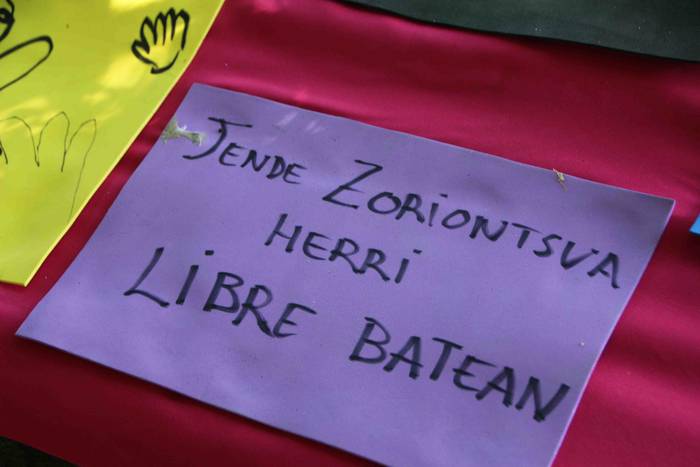 JENDE ZORIONTSUA
HERRI
LIBRE BATEAN